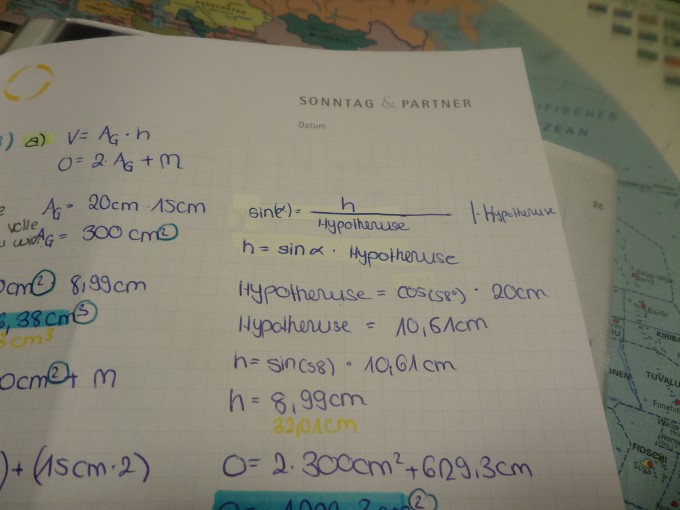 SONNTAG & PARTNER
Datum
a) V = AG · h
O = 2 · AG + M
AG = 20cm · 15cm
volle
AG = 300 cm²
0cm² 8,99cm
,38cm³
cm³
0cm² + M
) + (15cm · 2)
sin(α) = h / Hypothenuse | · Hypothenuse
h = sin α · Hypothenuse
Hypothenuse = cos(58°) · 20cm
Hypothenuse = 10,61cm
h = sin(58) · 10,61cm
h = 8,99cm
32,01cm
O = 2 · 300cm² + 629,3cm
IFISCHER
ZEAN
KIRIBA
TUVALU
FIDSCHI
Suva